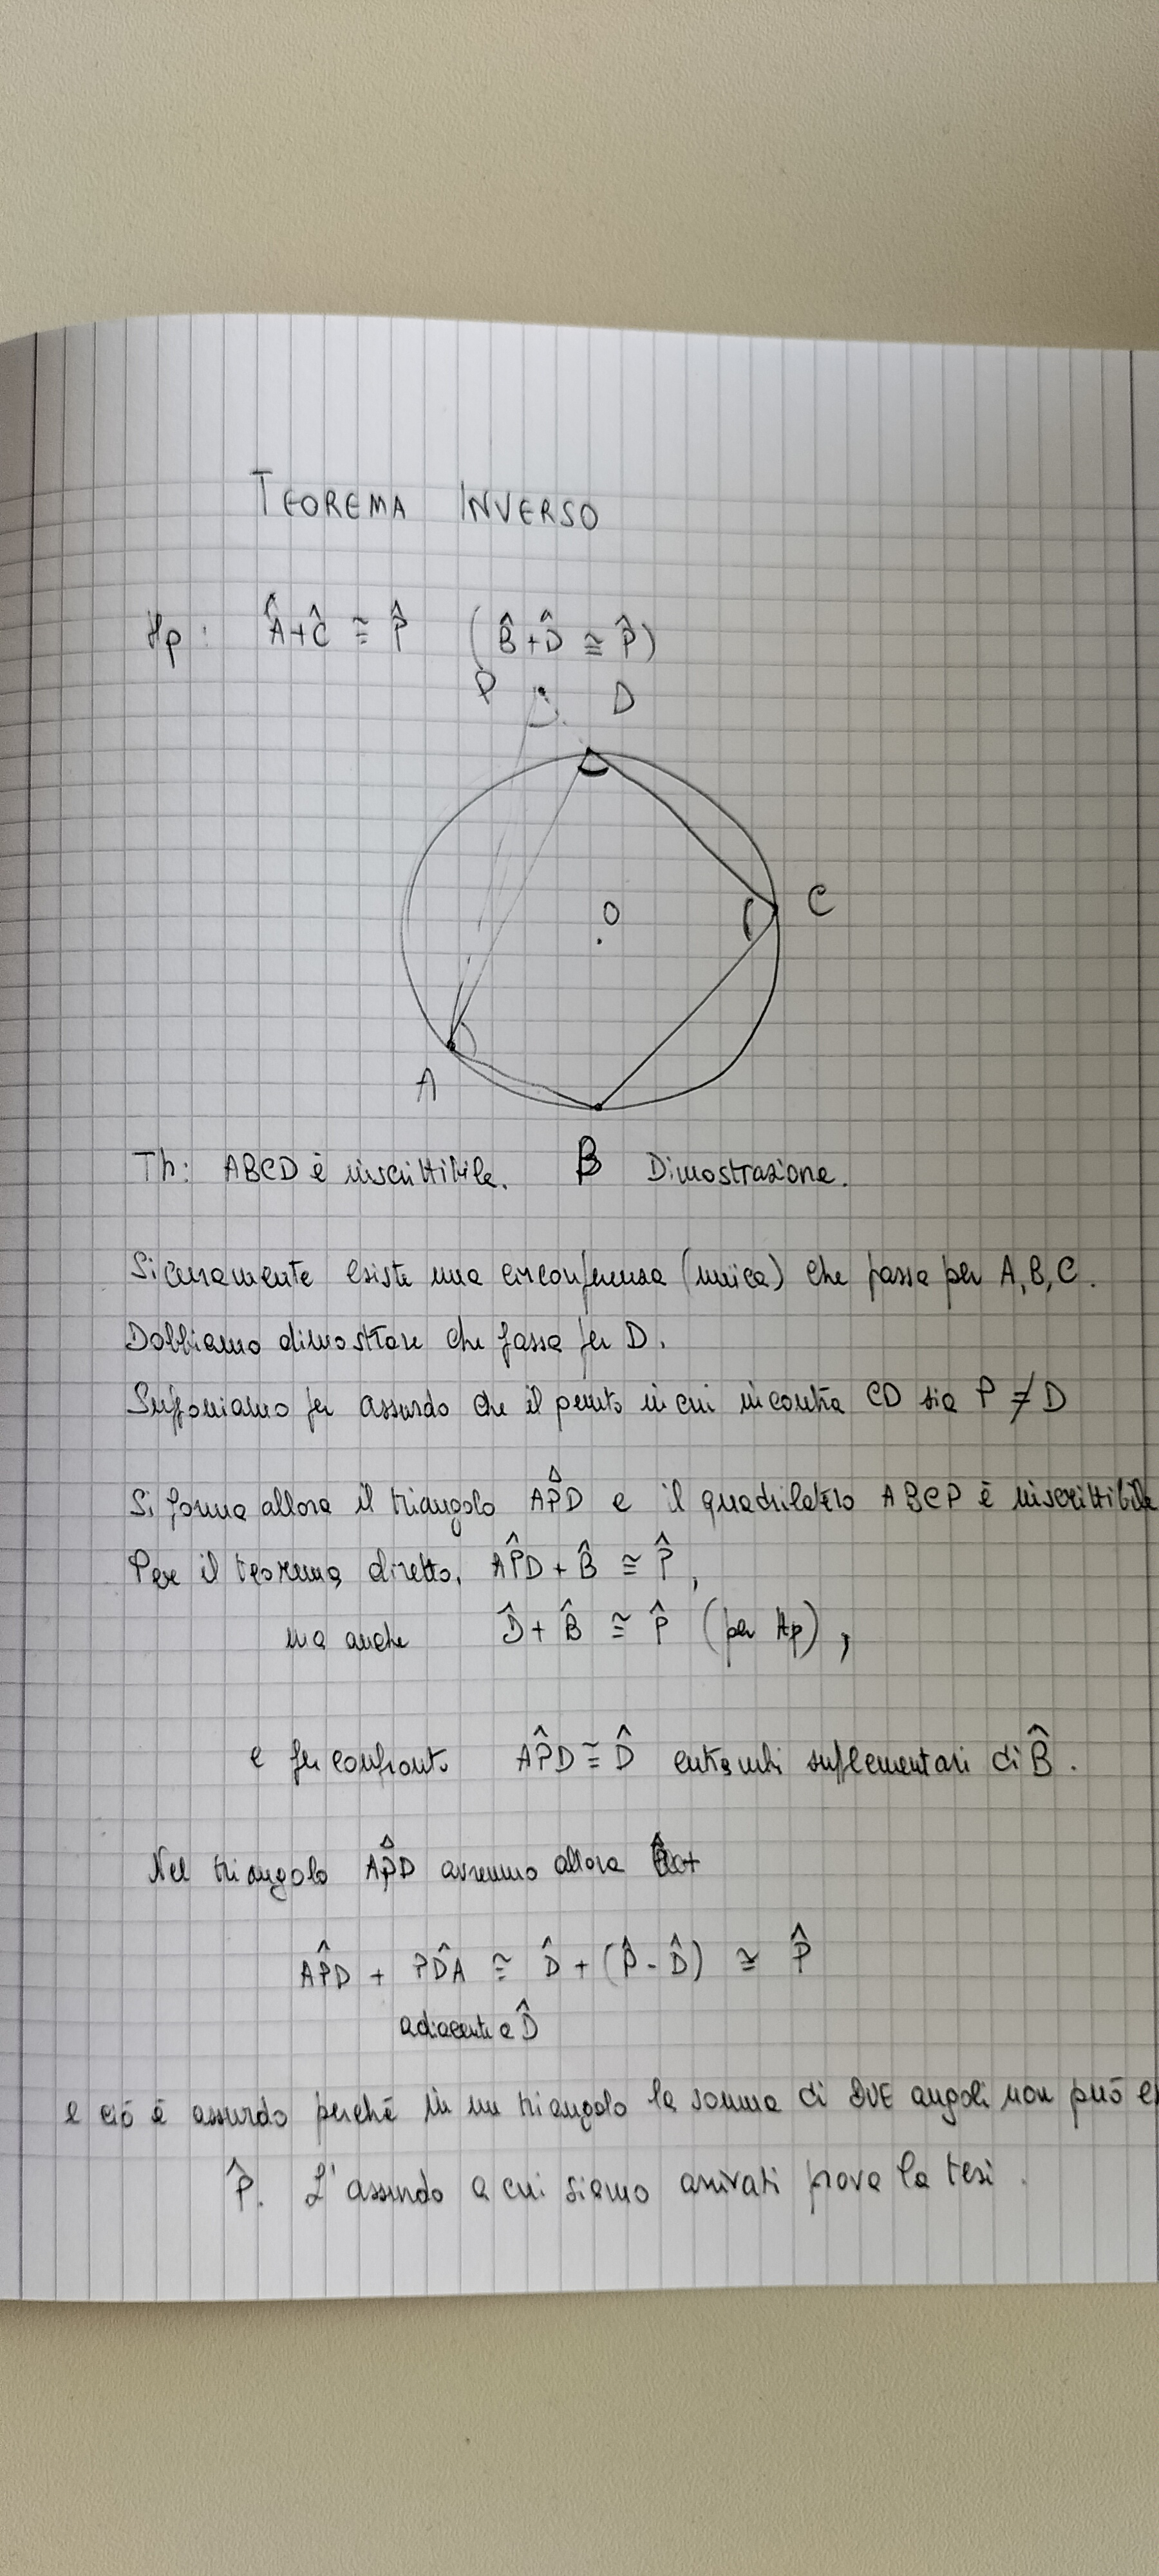 TEOREMA INVERSO
Hp: Â+Ĉ ≅ P̂ (B̂+D̂ ≅ P̂)
P D
O C
A
B
Th: ABCD è inscrittibile. Dimostrazione.
Sicuramente esiste una circonferenza (unica) che passa per A, B, C.
Dobbiamo dimostrare che passa per D.
Supponiamo per assurdo che il punto in cui incontra CD sia P ≠ D
Si forma allora il triangolo AP̂D e il quadrilatero ABCP è inscrittibile
Per il teorema diretto, AP̂D + B̂ ≅ P̂,
ma anche D̂ + B̂ ≅ P̂ (per Hp),
e per confronto AP̂D ≅ D̂ entrambi suplementari di B̂.
Nel triangolo AP̂D avremmo allora
AP̂D + PD̂A ≅ D̂ + (P̂ - D̂) ≅ P̂
adiacente a D̂
e ciò è assurdo perché in un triangolo la somma di DUE angoli non può es
P̂. L'assurdo a cui siamo arrivati prova la tesi.